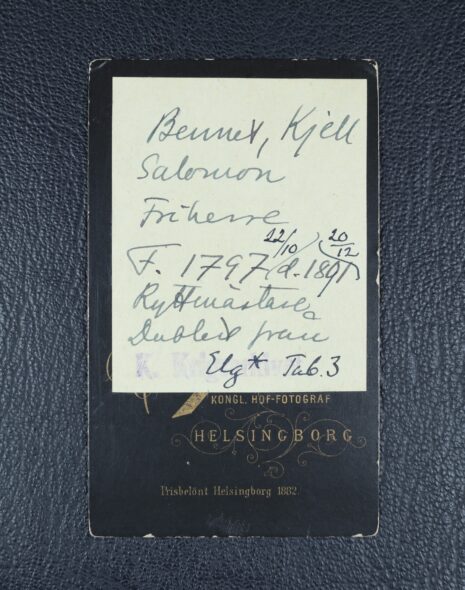 Bennet, Kjell
Salomon
Friherre
22/10 20/12
F. 1797 d. 1891
Ryttmästare
Dublett från
Elg* Tab. 3
KONGL. HOF-FOTOGRAF
HELSINGBORG
Prisbelönt Helsingborg 1882.